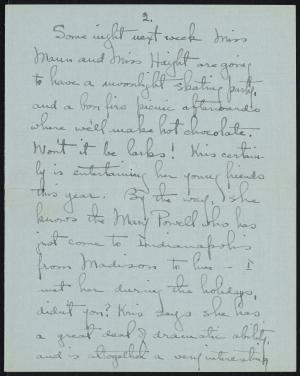 2.
Some night next week Miss
Mann and Miss Haight are going
to have a moonlight skating party,
and a bon fire picnic afterwards
where we'll make hot chocolate.
Won't it be larks! Kris certain-
ly is entertaining her young friends
this year. By the way, she
knows the Mary Powell who has
just come to Indianapolis
from Madison to live - I
met her during the holidays,
didn't you? Kris says she has
a great deal of dramatic ability,
and is altogether a very interesting